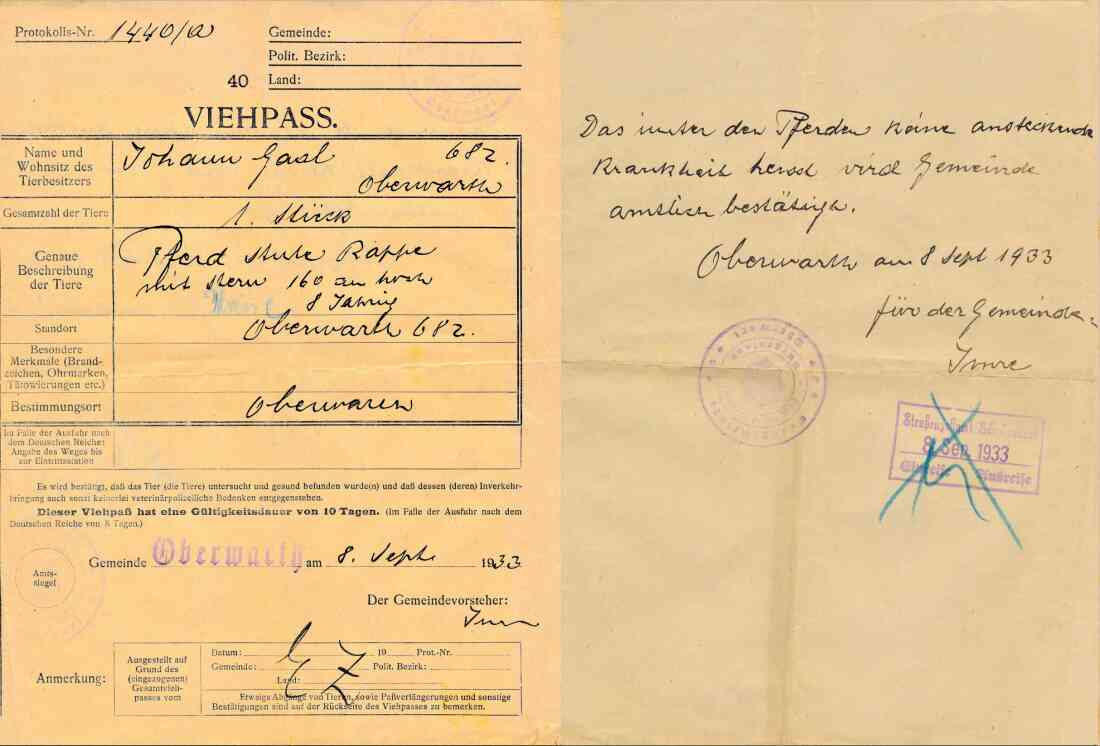 Protokolls-Nr. 1440/a
Gemeinde:
Polit. Bezirk:
40 Land:
VIEHPASS.
Name und Wohnsitz des Tierbesitzers
Johann Gasl 682.
Oberwarth
Gesamtzahl der Tiere 1. Stück
Genaue Beschreibung der Tiere
Pferd stute Rappe
mit stern 160 cm hoch
8 Jährig
Standort Oberwarth 682.
Besondere
Merkmale (Brand-
zeichen, Ohrmarken,
Tätowierungen etc.)
Bestimmungsort Oberwarth
Im Falle der Ausfuhr nach
dem Deutschen Reiche:
Angabe des Weges bis
zur Eintrittsstation
Es wird bestätigt, daß das Tier (die Tiere) untersucht und gesund befunden wurde(n) und daß dessen (deren) Inverkehr-
bringung auch sonst keinerlei veterinärpolizeiliche Bedenken entgegenstehen.
Dieser Viehpaß hat eine Gültigkeitsdauer von 10 Tagen. (Im Falle der Ausfuhr nach dem
Deutschen Reiche von 8 Tagen.)
Amts-
siegel
Gemeinde Oberwarth am 8. Sept 1933
Der Gemeindevorsteher:
Imre
Anmerkung:
Ausgestellt auf
Grund des
(eingezogenen)
Gesamtvieh-
passes vom
Datum: 19 Prot.-Nr.
Gemeinde: Polit. Bezirk:
Land:
Etwaige Abgänge von Tieren, sowie Paßverlängerungen und sonstige
Bestätigungen sind auf der Rückseite des Viehpasses zu bemerken.
Das unter den Pferden keine ansteckende
Krankheit hersd wird Gemeinde
amtlich bestätigt.
Oberwarth am 8 Sept 1933
für der Gemeinde
Imre
8. Sep. 1933
Ausreise